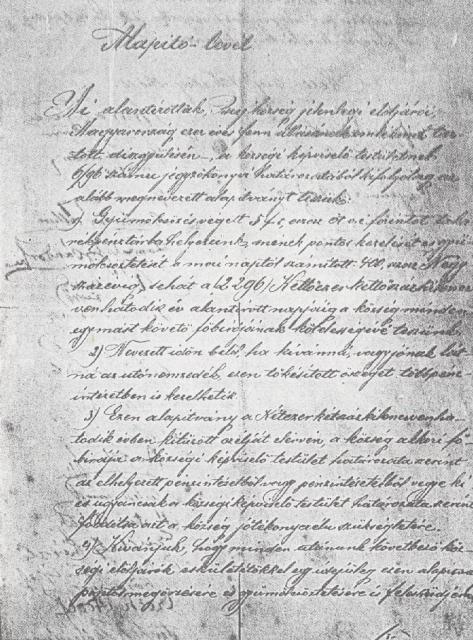 Alapitó-levél
Mi alantirottak, község jelenlegi elöljárói
Magyarország ezer éves fenn állásának emlékére tar-
tott díszgyűlésén, a községi képviselő testületnek
6/96 számu jegyzőkönyvi határozatából kifolyólag az
alább megnevezett alapitványt teszük:
1) Gyümölcsözés végett 5 frt, azaz öt o.é. forintot taka-
rékpénztárba helyezünk, minek pontos kezelését és gyü-
mölcsöztetését a mai naptól számított 400, azaz Négy
száz évig, tehát a (2296) Kettőezer kettőszáz kilenc-
venhatodik év alantirott napjáig a község minden
egymást követő főbirájának kötelességévé teszünk.
2) Nevezett időn belül, ha kivánná, vagy jónak lát-
ná az utónemzedék, ezen tőkésített összeget több pénz-
intézetben is kezelhetik.
3) Ezen alapitvány a Kétezer kétszáz kilencvenha-
todik évben kitűzött czélját elérvén, a község akkori fő-
birája a községi képviselő testület határozata szerint
az elhelyezett pénzintézetből vagy pénzintézetekből vegye ki
és ugyancsak a községi képviselő testület határozata szerint
fordítsa azt a község jótékonyczélu szükségletére.
4) Kivánjuk, hogy minden utánunk következő köz-
ségi elöljárók eskületétökkel egyidejüleg ezen alapitvány
megőrzésére és gyümölcsöztetésére is felesküdjenek